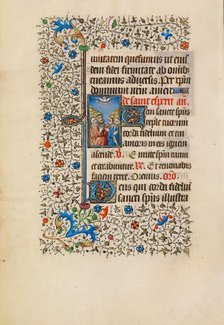 unitatem quesumus ut eius
dem fidei firmitate ab omib
muniamur aduersis. Per
dominum nrm
de saint esperit añ.
eni sancte spūs
reple tuorum
corda fidelium et tui
amoris in eis ignem
accende. V. Emitte spm tuum
et creabuntur. R. Et renouabis
faciem terre. Oremus. oro.
Deus qui corda fidelium
sancti spūs illustra